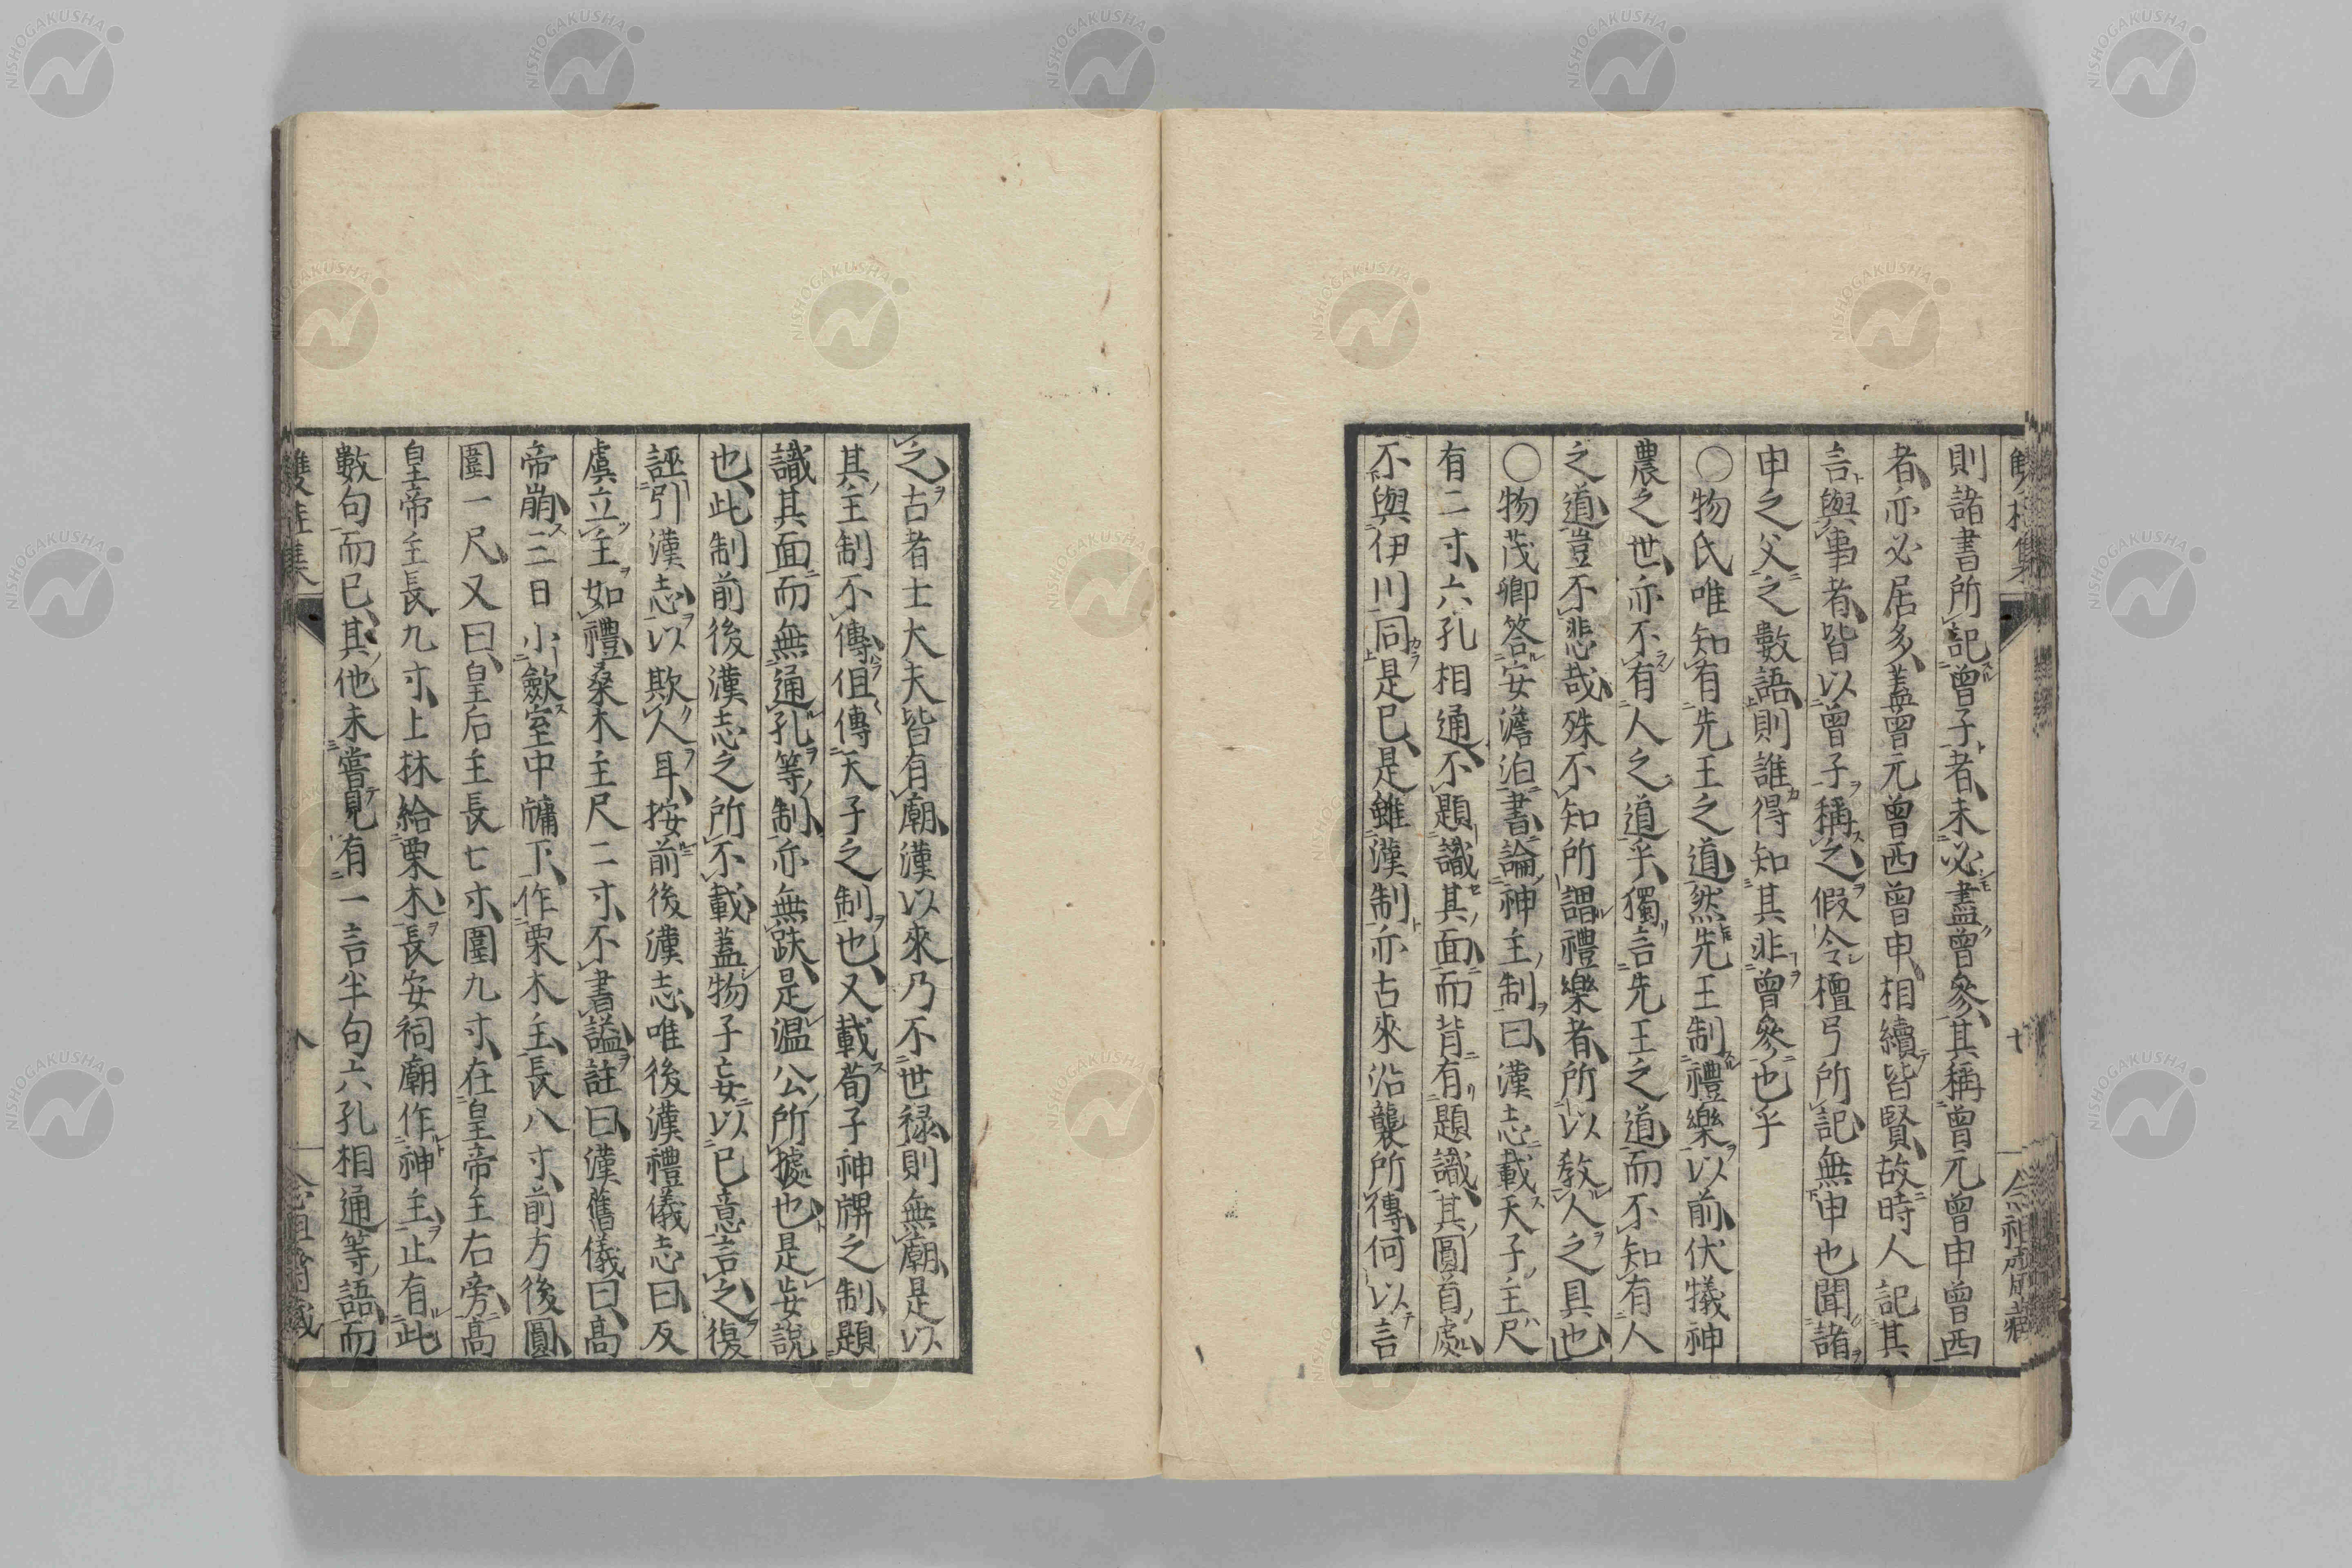 則諸書所記曾子者、未必盡曾參、其稱曾元曾申曾西
者、亦必居多、蓋曾元曾西曾申、相續皆賢、故時人記其
言與事者、皆以曾子稱之、假令檀弓所記、無申也聞諸
申之父之數語、則誰得知其非曾參也乎
〇物氏唯知有先王之道、然先王制禮樂以前、伏犧神
農之世、亦不有人之道乎、獨言先王之道、而不知有人
之道、豈不悲哉、殊不知所謂禮樂者、所以教人之具也、
〇物茂卿答安澹泊書、論神主制曰、漢志載天子主尺
有二寸、六孔相通、不題識其面、而背有題識、其圓首處、
不與伊川同、是已、是雖漢制亦古來沿襲所傳、何以言
之、古者士大夫皆有廟、漢以來乃不世禄、則無廟、是以
其主制不傳、但傳天子之制也、又載荀子神牌之制、題
識其面、而無通孔等制、亦無趺、是溫公所據也、是妄說
也、此制前後漢志之所不載、蓋物子妄以已意言之、復
誣引漢志、以欺人耳、按前後漢志、唯後漢禮儀志曰、反
虞立主如禮、桑木主尺二寸、不書謚、註曰、漢舊儀曰、高
帝崩、三日小斂室中牖下、作栗木主、長八寸、前方後圓、
圍一尺、又曰、皇后主長七寸、圍九寸、在皇帝主右旁、高
皇帝主長九寸、上林給栗木、長安祠廟作神主、止有此
數句而已、其他未嘗見有一言半句六孔相通等語、而
雙桂集
八
NISHOGAKUSHA